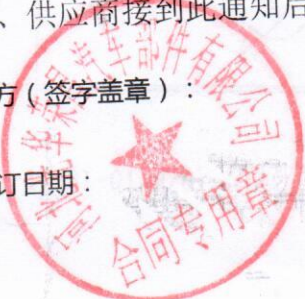 、供应商接到此通知后
方(签字盖章):
订日期:
汽车部件有限公司
合同专用章